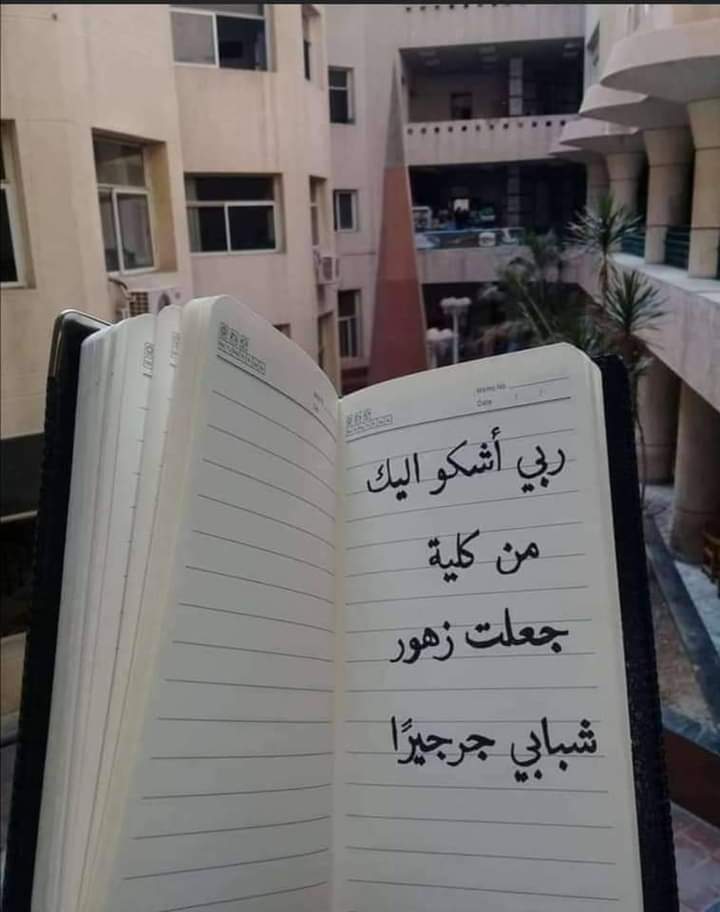 Memo No.
Date / /
ربي أشكو اليك
من كلية
جعلت زهور
شبابي جرجيرًا